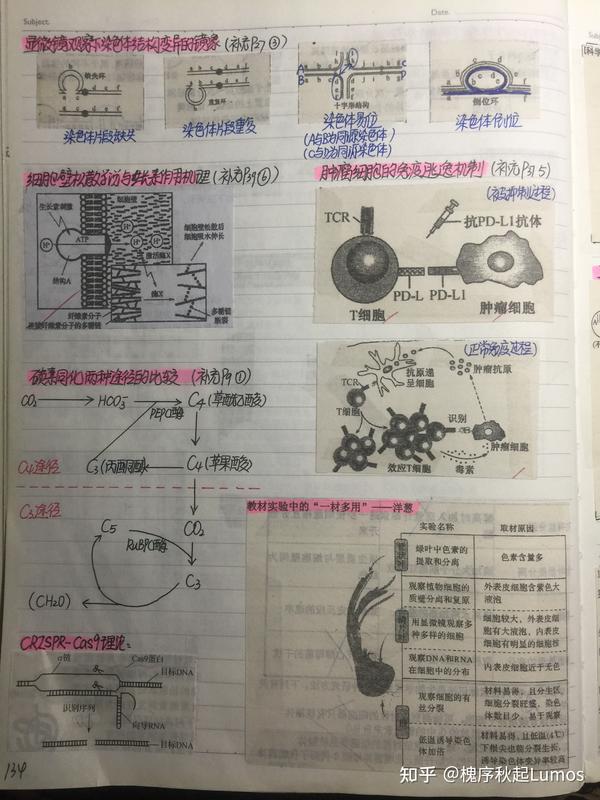 Subject.
Date.
显微镜观察下染色体结构变异的镜象 (补充P37③)
缺失环
重复环
十字形结构
倒位环
染色体片段缺失
染色体片段重复
染色体易位
(A与B为同源染色体)
(C与D为同源染色体)
染色体倒位
细胞壁松散
作用机理(补充P39⑥)
生长素刺激
细胞壁
H⁺
ATP
H⁺
H⁺
H⁺
激活酶X
细胞壁松散后
细胞吸水伸长
结构A
酶X
纤维素分子
多糖链
断裂
纤维素分子的多糖链
肿瘤细胞的免疫逃逸机制 (补充P31 5)
(被抑制过程)
TCR
抗PD-L1抗体
PD-L
PD-L1
T细胞
肿瘤细胞
(正常免疫过程)
抗原递
呈细胞
肿瘤抗原
TCR
T细胞
识别
肿瘤细胞
效应T细胞
毒素
碳素同化两种途径的比较 (补充P9①)
CO₂
HCO₃
C₄(草酰乙酸)
PEPC酶
C₄途径
C₃(丙酮酸)
C₄(苹果酸)
C₃途径
C₅
CO₂
RuBPC酶
C₃
(CH₂O)
CRISPR-Cas9理论:
α链
Cas9蛋白
目标DNA
识别序列
向导RNA
目标DNA
教材实验中的“一材多用”——洋葱
实验名称
取材原因
管状叶
绿叶中色素的
提取和分离
色素含量多
鳞片叶
观察植物细胞的
质壁分离和复原
外表皮细胞含紫色大
液泡
用显微镜观察多
种多样的细胞
细胞较大,外表皮细
胞有大液泡,内表皮
细胞有明显的细胞核
观察DNA和RNA
在细胞中的分布
内表皮细胞近于无色
观察细胞的有
丝分裂
材料易得,且分生区
细胞分裂旺盛,染色
体数目少,易于观察
低温诱导染色体
加倍
材料易得,且低温(4℃)
下根尖也能分裂生长,
诱导染色体变异率较高
134
知乎 @槐序秋起Lumos